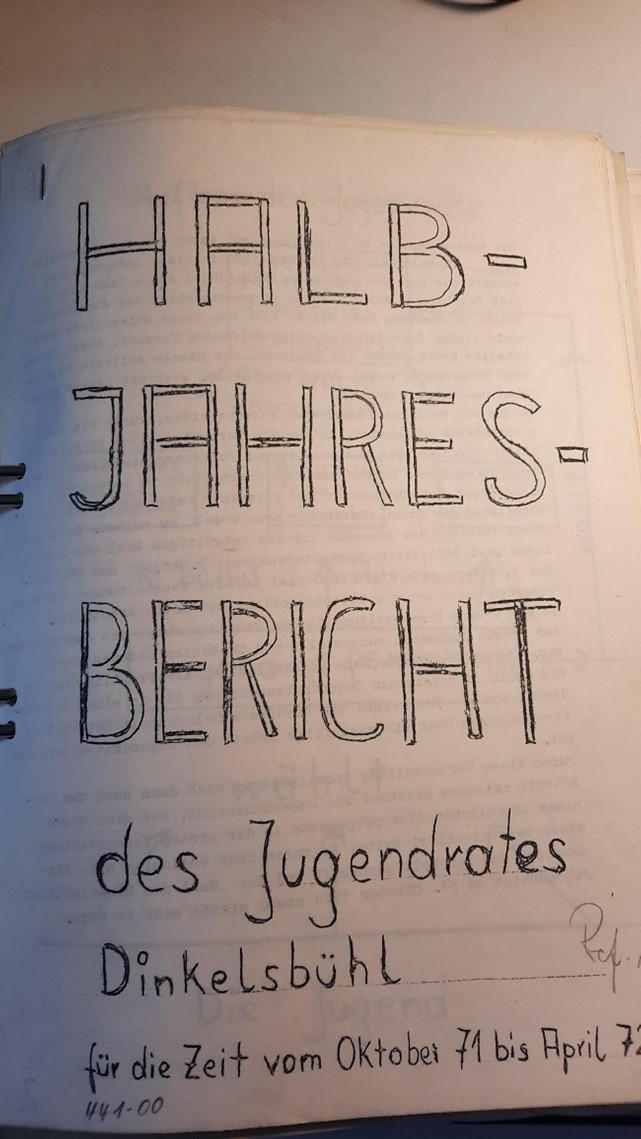 HALB-
JAHRES-
BERICHT
des Jugendrates
Dinkelsbühl
für die Zeit vom Oktober 71 bis April 72
441-00